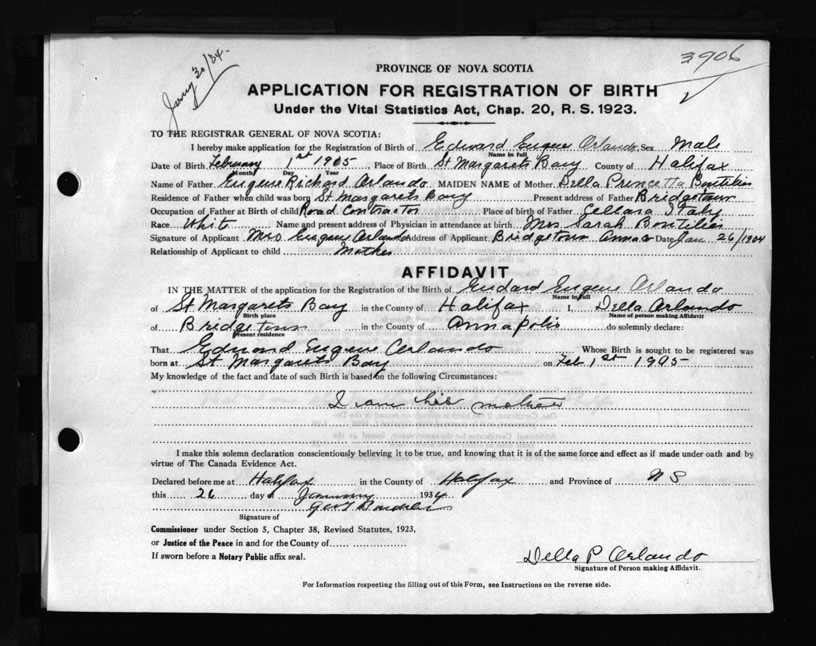 Jany 30/34.
3906
PROVINCE OF NOVA SCOTIA
APPLICATION FOR REGISTRATION OF BIRTH
Under the Vital Statistics Act, Chap. 20, R. S. 1923.
TO THE REGISTRAR GENERAL OF NOVA SCOTIA:
I hereby make application for the Registration of Birth of Edward Eugene Orlando Sex Male
Name in full
Date of Birth February 1st 1905 Place of Birth St Margarets Bay County of Halifax
Month Day Year
Name of Father Eugene Richard Orlando MAIDEN NAME of Mother Della Boutilier
Residence of Father when child was born St Margarets Bay Present address of Father Bridgetown
Occupation of Father at Birth of child Road Contractor Place of birth of Father Italy
Race White Name and present address of Physician in attendance at birth Mrs Sarah Boutilier
Signature of Applicant Mrs Eugene Orlando Address of Applicant Bridgetown Anna Co Date Jan 26/1934
Relationship of Applicant to child Mother
AFFIDAVIT
IN THE MATTER of the application for the Registration of the Birth of Eugene Orlando
Name in full
of St Margarets Bay in the County of Halifax I, Della Orlando
Birth place Name of person making Affidavit
of Bridgetown in the County of Annapolis do solemnly declare:
Present residence
That Edward Eugene Orlando Whose Birth is sought to be registered was
born at St Margarets Bay on Feb 1st 1905
My knowledge of the fact and date of such Birth is based on the following Circumstances:
I am his mother
I make this solemn declaration conscientiously believing it to be true, and knowing that it is of the same force and effect as if made under oath and by
virtue of The Canada Evidence Act.
Declared before me at Halifax in the County of Halifax and Province of N S
this 26 day of January 1934
Signature of
Commissioner under Section 5, Chapter 38, Revised Statutes, 1923,
or Justice of the Peace in and for the County of
If sworn before a Notary Public affix seal.
Della P Orlando
Signature of Person making Affidavit.
For Information respecting the filling out of this Form, see Instructions on the reverse side.